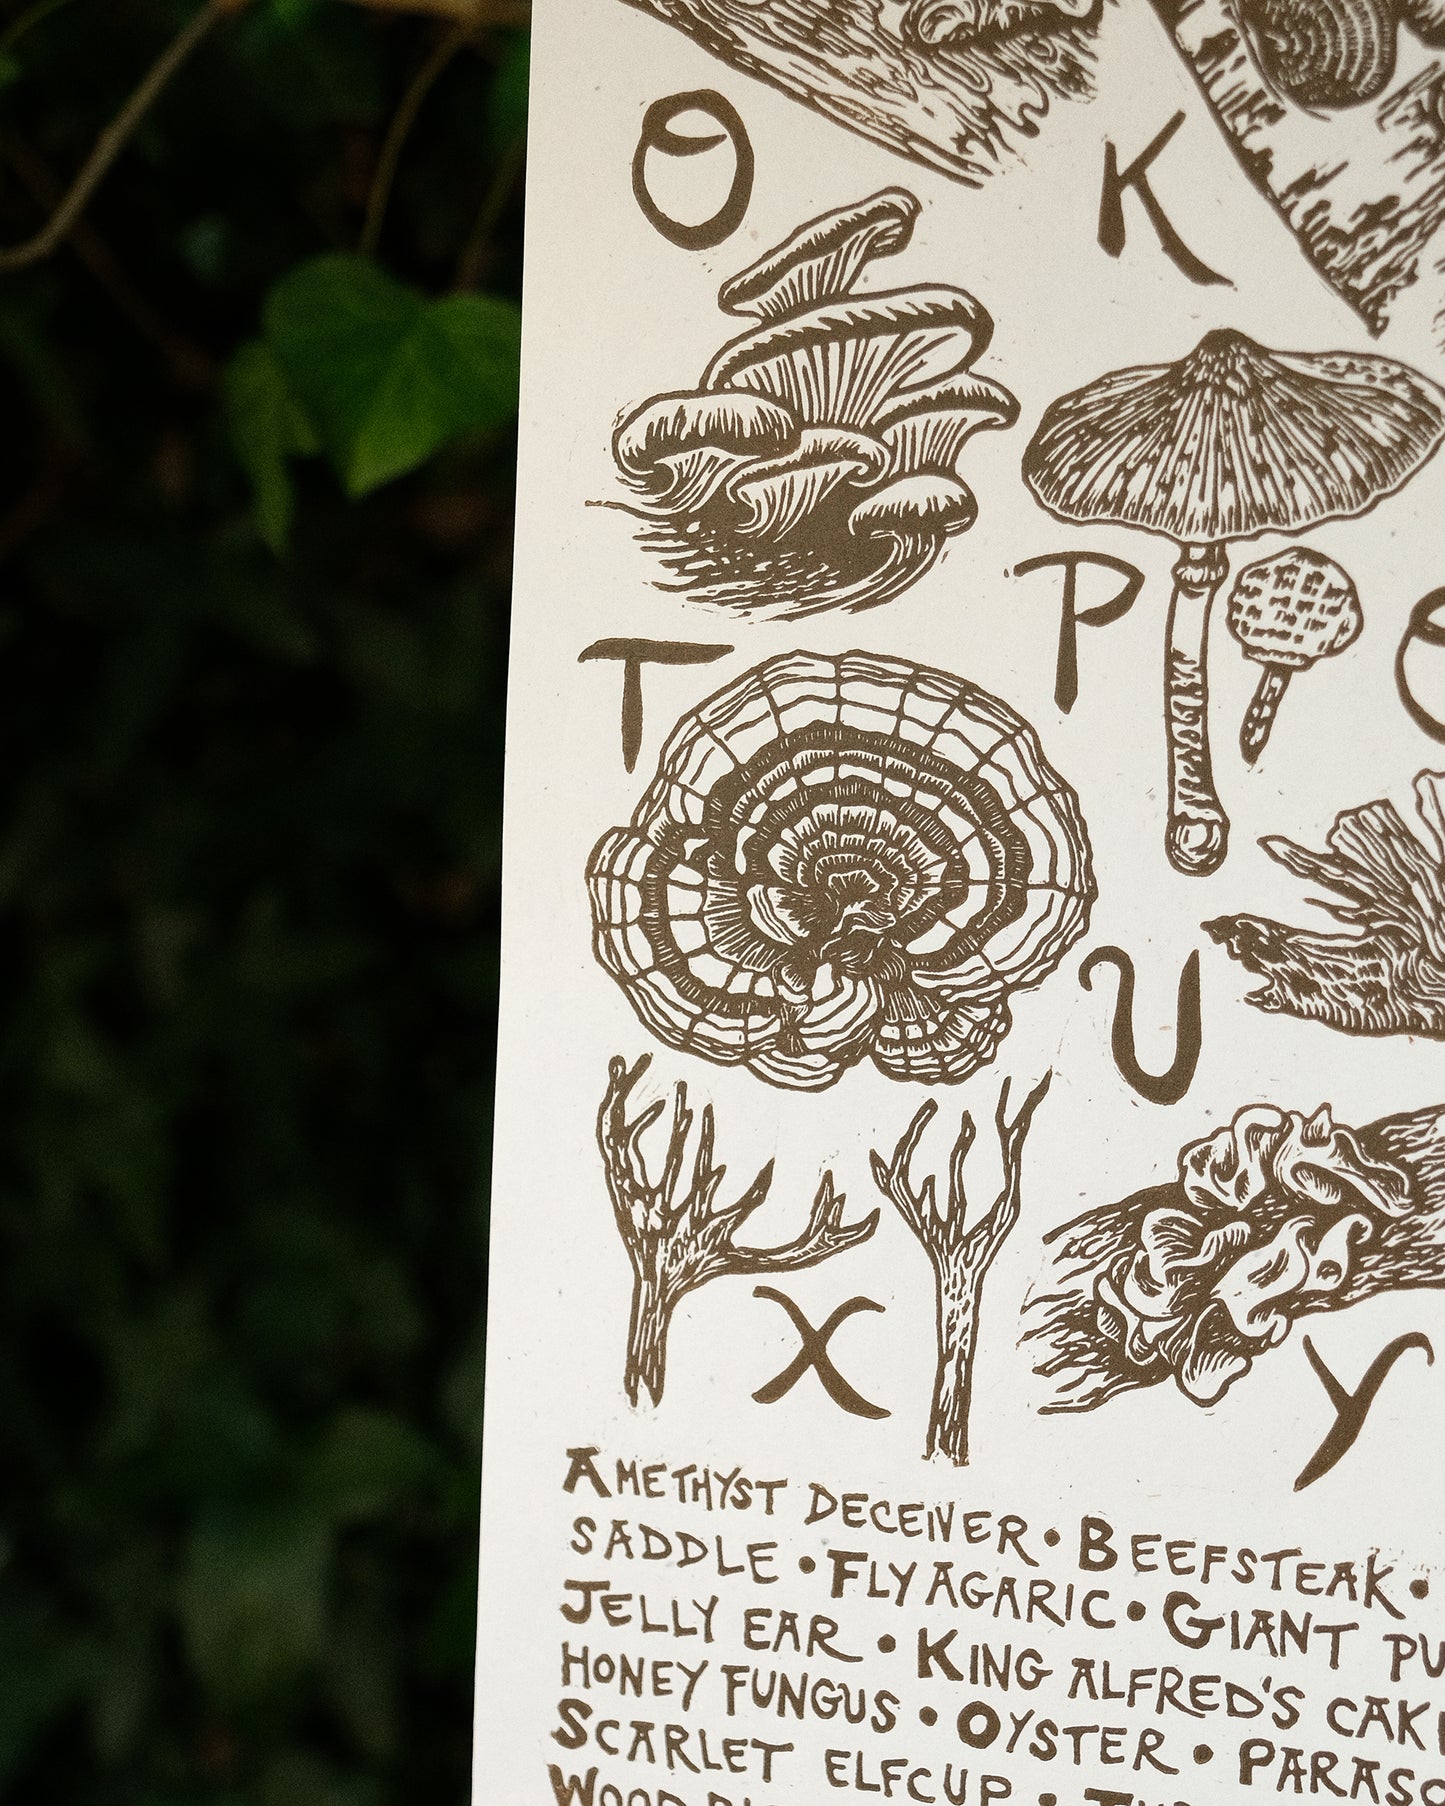 O K
T P
U
X Y
AMETHYST DECEIVER • BEEFSTEAK •
SADDLE • FLY AGARIC • GIANT
JELLY EAR • KING ALFRED'S
HONEY FUNGUS • OYSTER •
SCARLET ELFCUP •